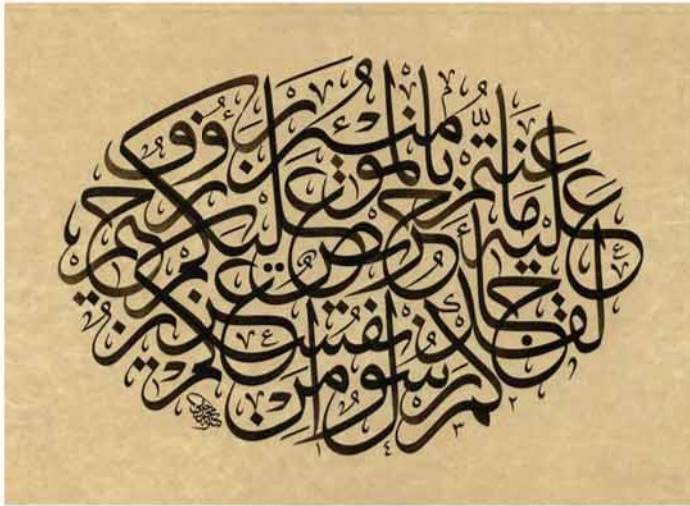 لقد جاءكم رسول من أنفسكم عزيز
عليه ما عنتم حريص عليكم
بالمؤمنين رؤوف رحيم